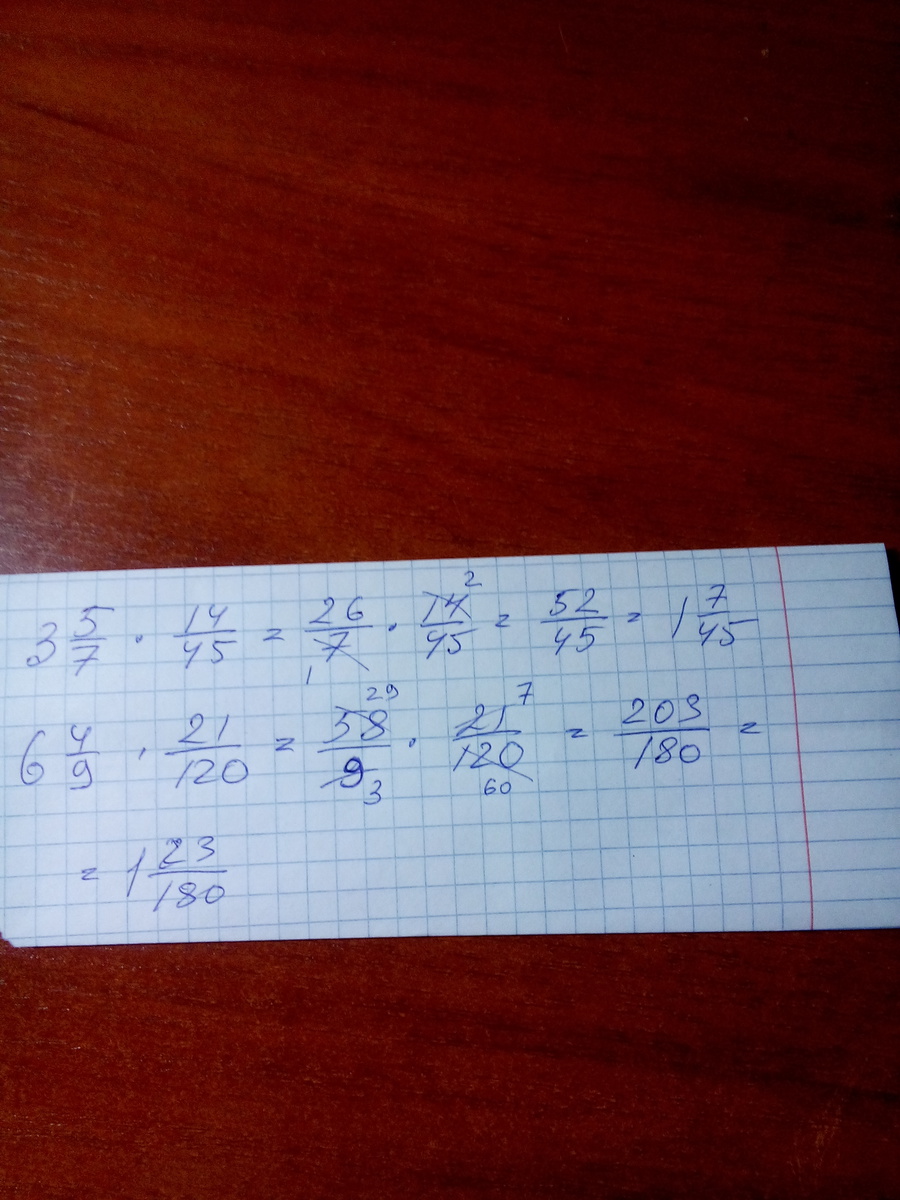 3 5/7 · 14/45 = 26/7 1 · 14/45 2 = 52/45 = 1 7/45
6 4/9 · 21/120 = 58/9 29 3 · 21/120 7 60 = 203/180 =
= 1 23/180